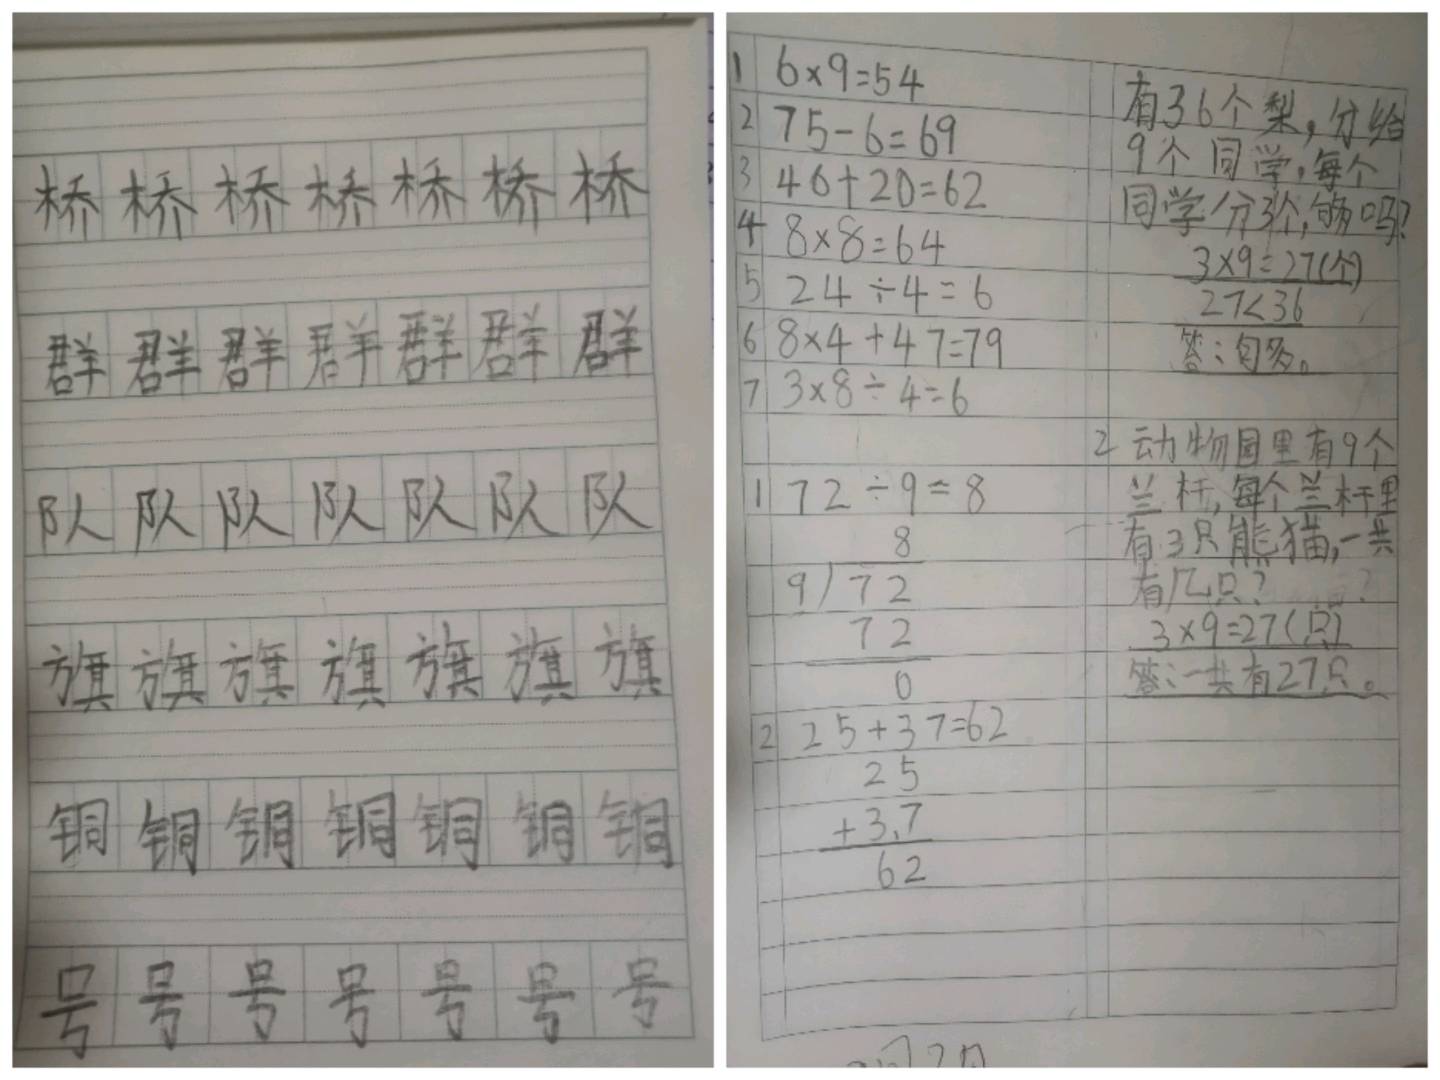 桥桥桥桥桥桥桥
群群群群群群群
队队队队队队队
旗旗旗旗旗旗旗
铜铜铜铜铜铜铜
号号号号号号号
1 6×9=54
2 75-6=69
3 46+20=62
4 8×8=64
5 24÷4=6
6 8×4+47=79
7 3×8÷4=6
1 72÷9=8
8
9)72
72
0
2 25+37=62
25
+3.7
62
有36个梨,分给
9个同学,每个
同学分3个,够吗?
3×9=27(个)
27<36
答:句多。
2 动物园里有9个
兰杆,每个兰杆里
有3只熊猫,一共
有几只?
3×9=27(只)
答:一共有27只。